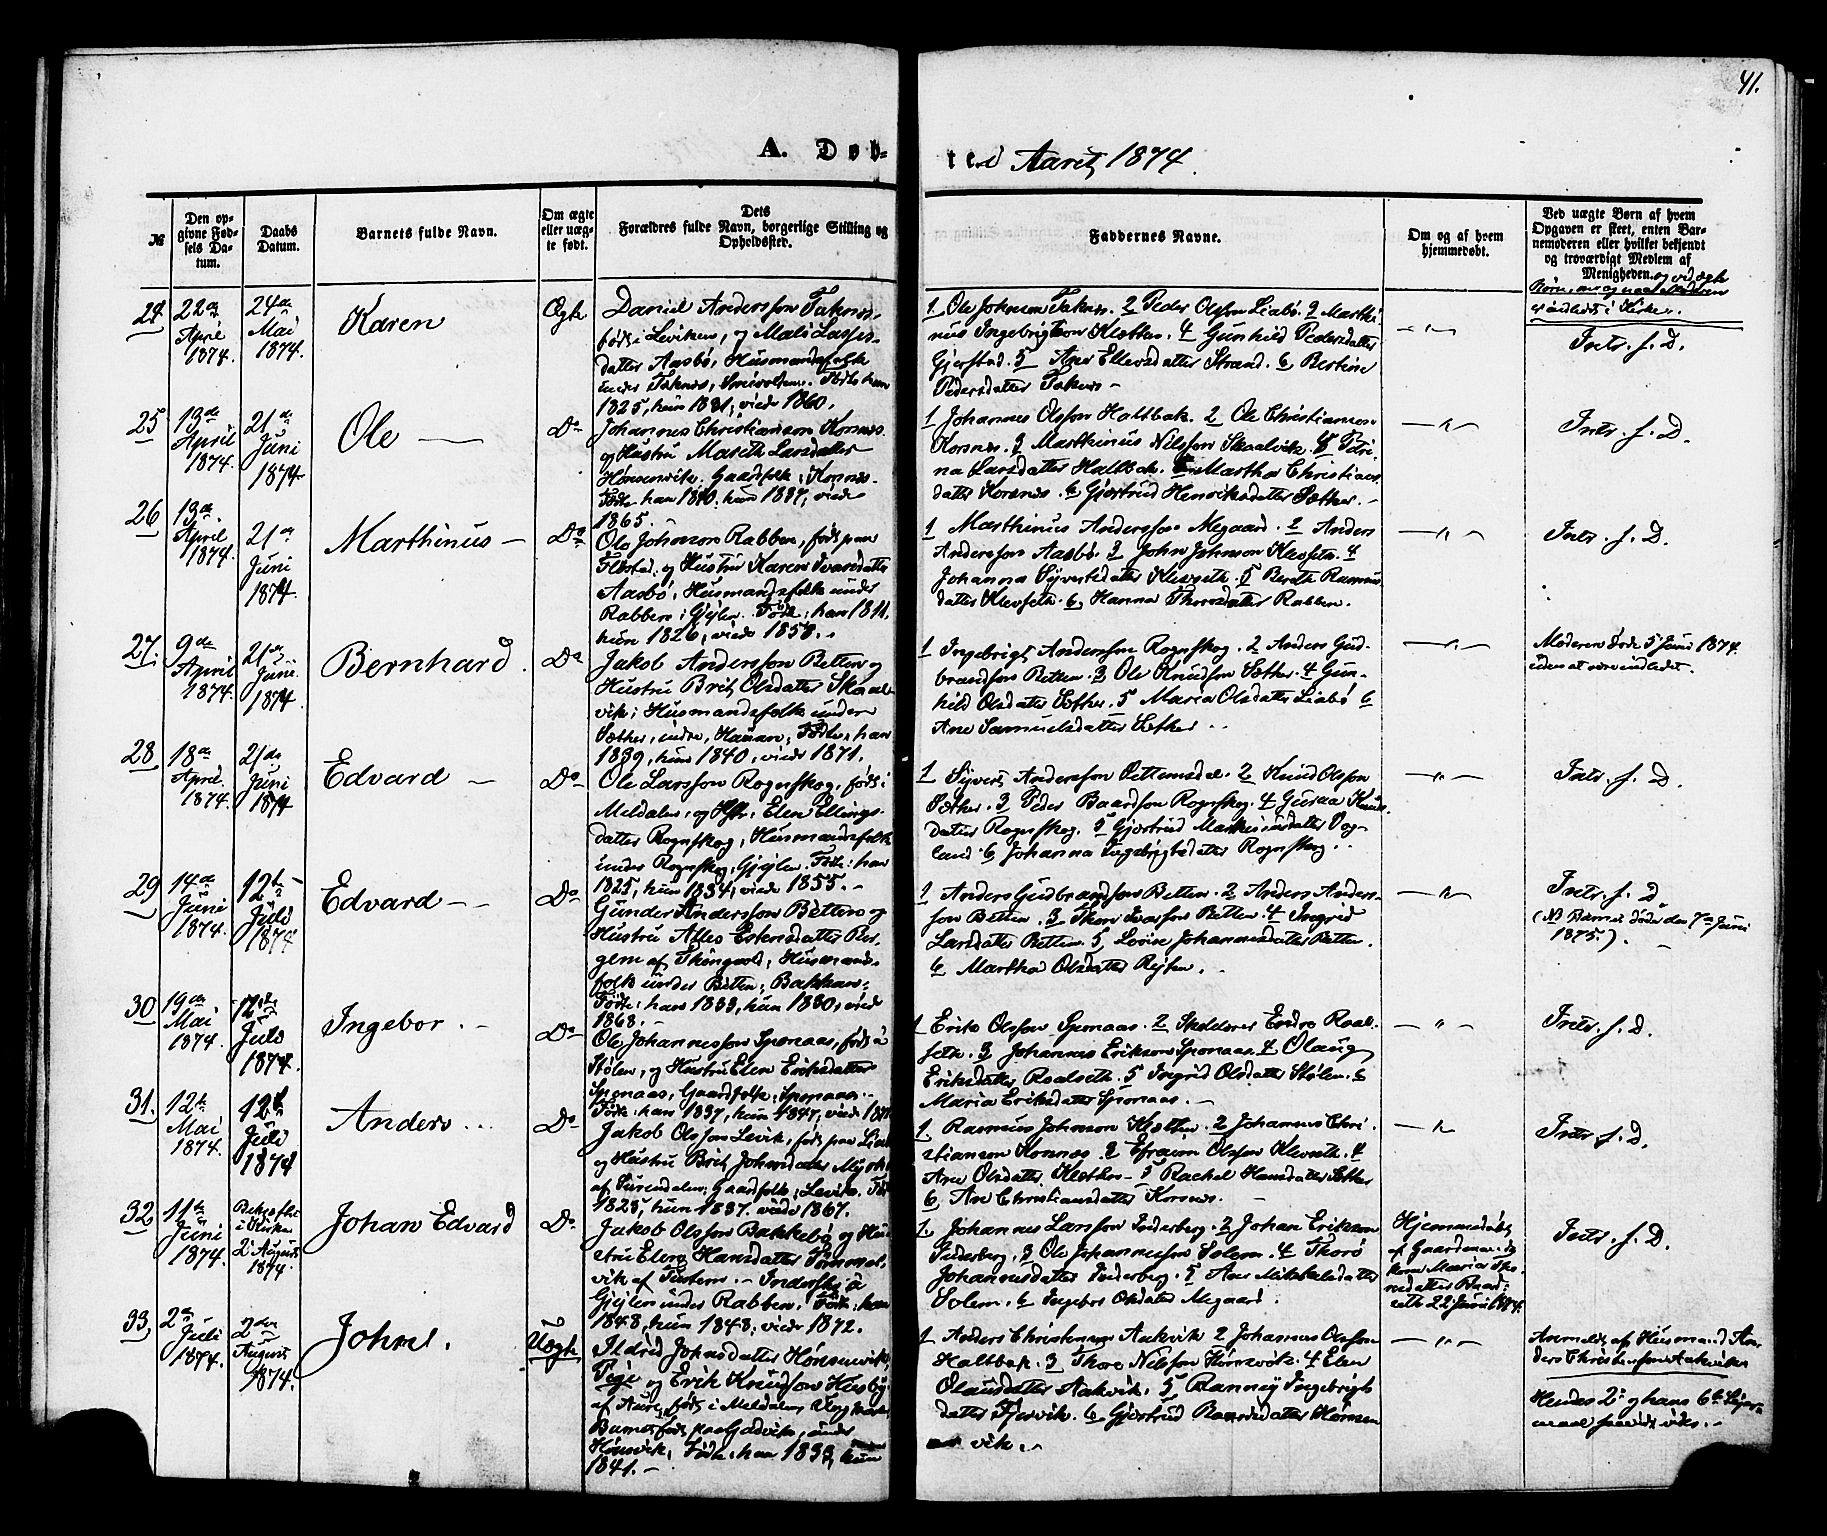 41.
A. Døb-
te i Aaret 1874.
№
Den op-
givne Fød-
sels Da-
tum.
Daabs
Datum.
Barnets fulde Navn.
Om ægte
eller uæg-
te født.
Dets
Forældres fulde Navn, borgerlige Stilling og
Opholdssted.
Faddernes Navne.
Om og af hvem
hjemmedøbt.
Ved uægte Børn af hvem
Opgaven er skeet, enten Bar-
nemoderen eller hvilket bekjendt
og troværdigt Medlem af
Menigheden.
24
22de
April
1874.
24de
Mai
1874.
Karen
Ægte
Daniel Andersson
datter Aasbø, Husmandsfolk
1825, hun 1831, viede 1860.
2 Peder Olsson Liabø. 3 Marthi-
nus Ingebrigtson 4 Gunhild Pedersdatter
Gjerstad. 5 Ane Ellevsdatter Strand. 6
Pedersdatter
Intr. f. D.
25
13de
April
1874.
21de
Juni
1874
Ole
Do
Johannes Christianson Kornes
og Hustru Mareth Larsdatter
Hønsenvik. Gaardfolk i Kornes.
Føde: han 1840. hun 1837, viede
1865.
1 Johannes Olsson Haltbak. 2 Ole Christianson
Kornes. 3 Marthinus Nilsson Skaalvik. 4
Larsdatter Haltbak. 5 Martha Christians
datter Kornes. 6 Gjertrud Henriksdatter Sæther.
Intr. f. D.
26
13de
April
1874.
21de
Juni
1874.
Marthinus
Do
Ole Johnson Rabben, født paa
og Hustru Karen Ivarsdatter
Aasbø, Husmandsfolk under
Rabben i Gjejlen. Føde: han 1811,
hun 1826, viede 1850.
1 Marthinus Andersson Megaard. 2 Anders
Andersson Aasbø. 3 John Johnson Klevseth. 4
Johanna Sjversdatter Klevseth. 5 Bereth Rasmus
datter Klevseth. 6, Hanna Thoresdatter Rabben.
Intr. f. D.
27.
9de
April
1874.
21de
Juni
1874
Bernhard.
Do
Jakob Andersson Betten og
Hustru Brit Olsdatter Skaal
vik, Husmandsfolk under
Sæther, indre, Føde: han
1839, hun 1840, viede 1871.
1 Ingebrigt Andersson Rognskog. 2 Anders Gud-
brandson Betten. 3 Ole Knudson Sæther. 4 Gun-
hild Olsdatter Sæther. 5 Maria Olsdatter Liabø 6
Ane Samuelsdatter Sæther
Moderen døde 5 Juni 1874.
uden at være indledet.
28
18de
April
1874.
21de
Juni
1874
Edvard
Do
Ole Larsson Rognskog, født i
Meldalen, og Hstr. Elen Ellings-
datter Rognskog, Husmandsfolk
under Rognskog, Gjejlen. Føde: han
1825, hun 1834, viede 1855.
1 Sjvert Andersson 2 Knud Olsson
Sæther. 3 Peder Baardson Rognskog. 4 Guraa Knuds
datter Rognskog. 5 Gjertrud Marthinusdatter Vog-
land 6 Johanna Ingebrigtsdatter Rognskog.
Intr. f. D.
29
14de
Juni
1874.
12te
Juli
1874
Edvard
Do
Gunder Andersson Betten og
Hustru
gem af Thingvold, Husmands-
folk under Betten, Bakken.
Føde: han 1833, hun 1830, viede
1868.
1 Anders Gudbrandson Betten. 2 Anders Anders-
son Betten. 3 Thore Ivarson Betten. 4 Ingrid
Larsdatter Betten. 5, Lovise Johannesdatter Betten.
6 Martha Olsdatter
Intr. f. D.
(NB Barnet døde den 7de Juni
1875.)
30
19de
Mai
1874.
12te
Juli
1874.
Ingebor
Do
Ole Johannesson Sponaas, født i
Stølen, og Hustru Elen Eriksdatter
Sponaas, Gaardfolk, Sponaas.
Føde: han 1837, hun 1847, viede
1 Erik Olsson Sponaas. 2 Skolelærer Endre Roal-
seth. 3 Johannes Erikson Sponaas. 4 Olaug
Eriksdatter Roalseth. 5 Ingrid Olsdatter Stølen. 6
Maria Eriksdatter Sponaas.
Intr. f. D.
31.
12te
Mai
1874.
12te
Juli
1874
Anders
Do
Jakob Olsson Levik, født paa
og Hustru Brit Johnsdatter
af Surendalen, Gaardfolk, Levik.
1823, hun 1837. viede 1867.
1. Rasmus Johnson 2 Johannes Chri-
stianson Kornes. 3 Efraim Olsson Klevseth. 4
Ane Olsdatter 5 Rachel Hansdatter Sæther
6 Ane Christiansdatter Kornes.
Intr. f. D.
32
11te
Juni
1874.
Bekræftet
i Kirken
2 August
1874.
Johan Edvard
Do
Jakob Olsson Bakkebø og Hu-
stru Hansdatter Tømmer-
vik af Tustern. Inderster i
Gjejlen under Rabben. Føde: han
1848, hun 1848, viede 1872.
1. Johannes Larsson Inderberg. 2 Johan Erikson
Inderberg, 3 Ole Johannesson Solem. 4 Thorø
Johannesdatter Inderberg. 5 Ane Mikkelsdatter
Solem. 6 Ingebor Olsdatter Megaard.
Hjemmedøbt
af
Maria
22 Juni 1874.
Intr. f. D.
33
2den
Juli
1874.
2den
August
1874.
John.
Uægte
Ildrid Johnsdatter Hønsenvik,
Pige og Erik Knudson Husby
af Aure, født i Meldalen, Ungkarl.
Barnet født paa under
Hønsvik. Føde: han 1833, hun
1841.
1 Anders Christenson Aakvik 2 Johannes Olsson
Haltbak. 3 Thore Nilsson 4 Elen
Olausdatter Aakvik. 5 Rannei Ingebrigts
datter 6 Gjertrud Hønsen
vik.
Anmeldt af Husmand An-
ders Christenson Aakvik
Hendes 2det og hans 6te Leier-
maal